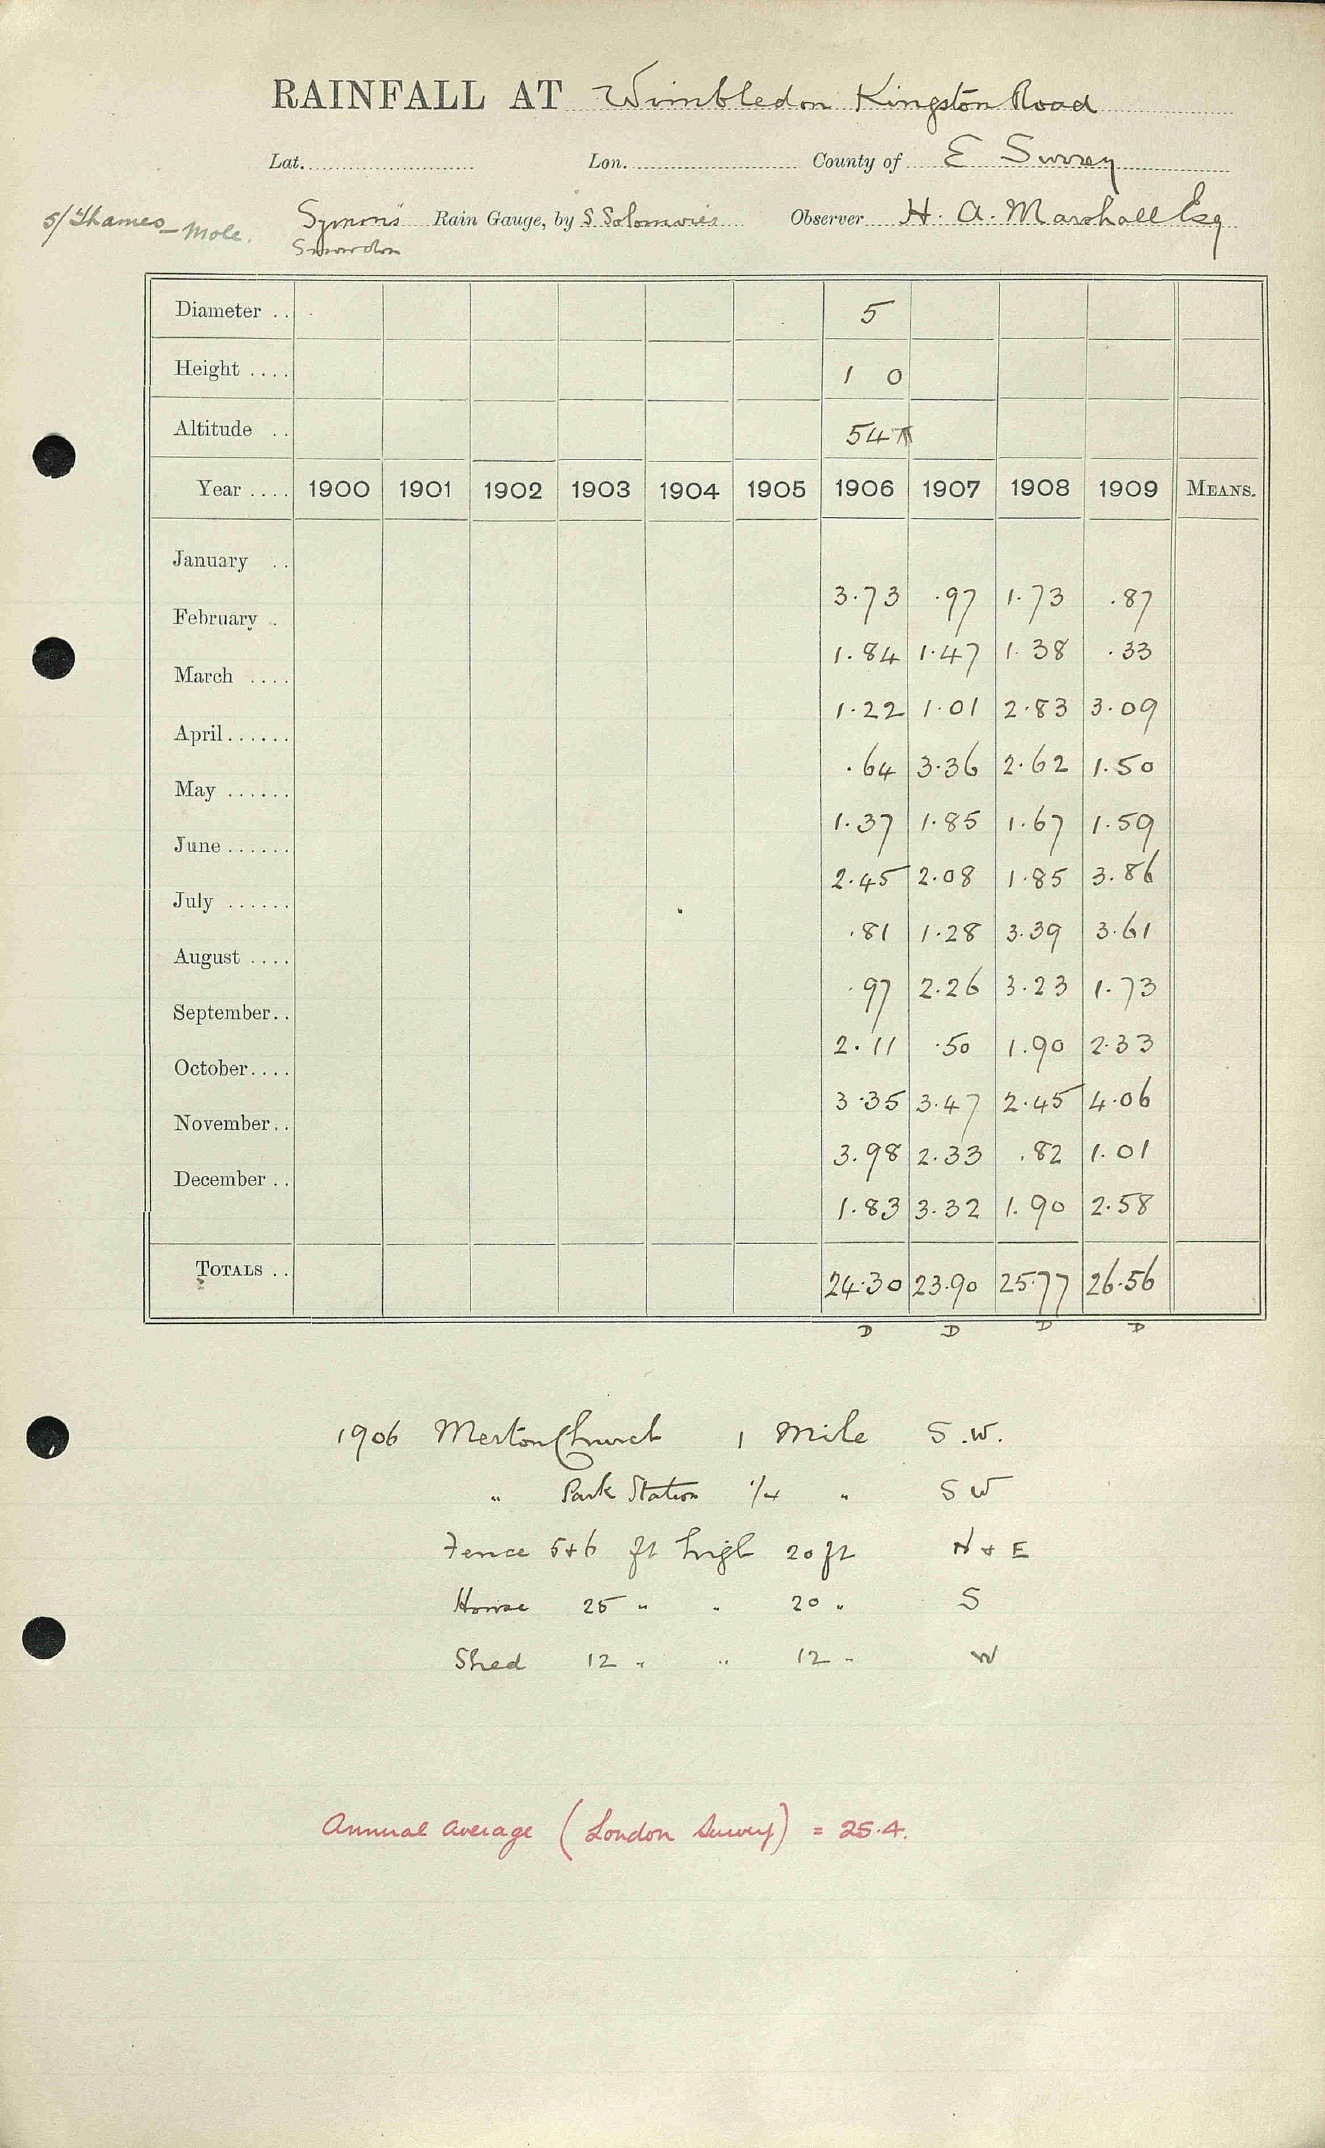 RAINFALL AT Wimbledon Kingston Road
Lat. Lon. County of E Surrey
5/Thames-Mole. Symons Rain Gauge, by S. Observer H. A. Marshall Esq
Snowdon
Diameter .. 5
Height .... 1 0
Altitude .. 54
Year .... 1900 1901 1902 1903 1904 1905 1906 1907 1908 1909 MEANS.
January .. 3.73 .97 1.73 .87
February .. 1.84 1.47 1.38 .33
March .... 1.22 1.01 2.83 3.09
April...... .64 3.36 2.62 1.50
May ...... 1.37 1.85 1.67 1.59
June ...... 2.45 2.08 1.85 3.86
July ...... .81 1.28 3.39 3.61
August .... .97 2.26 3.23 1.73
September.. 2.11 .50 1.90 2.33
October.... 3.35 3.47 2.45 4.06
November.. 3.98 2.33 .82 1.01
December .. 1.83 3.32 1.90 2.58
TOTALS .. 24.30 23.90 25.77 26.56
D D D D
1906 Merton Church 1 Mile S.W.
" Park Station 1/4 " S W
Fence 5+6 ft high 20 ft N + E
House 25 " " 20 " S
Shed 12 " " 12 " W
Annual average (London Survey) = 25.4.